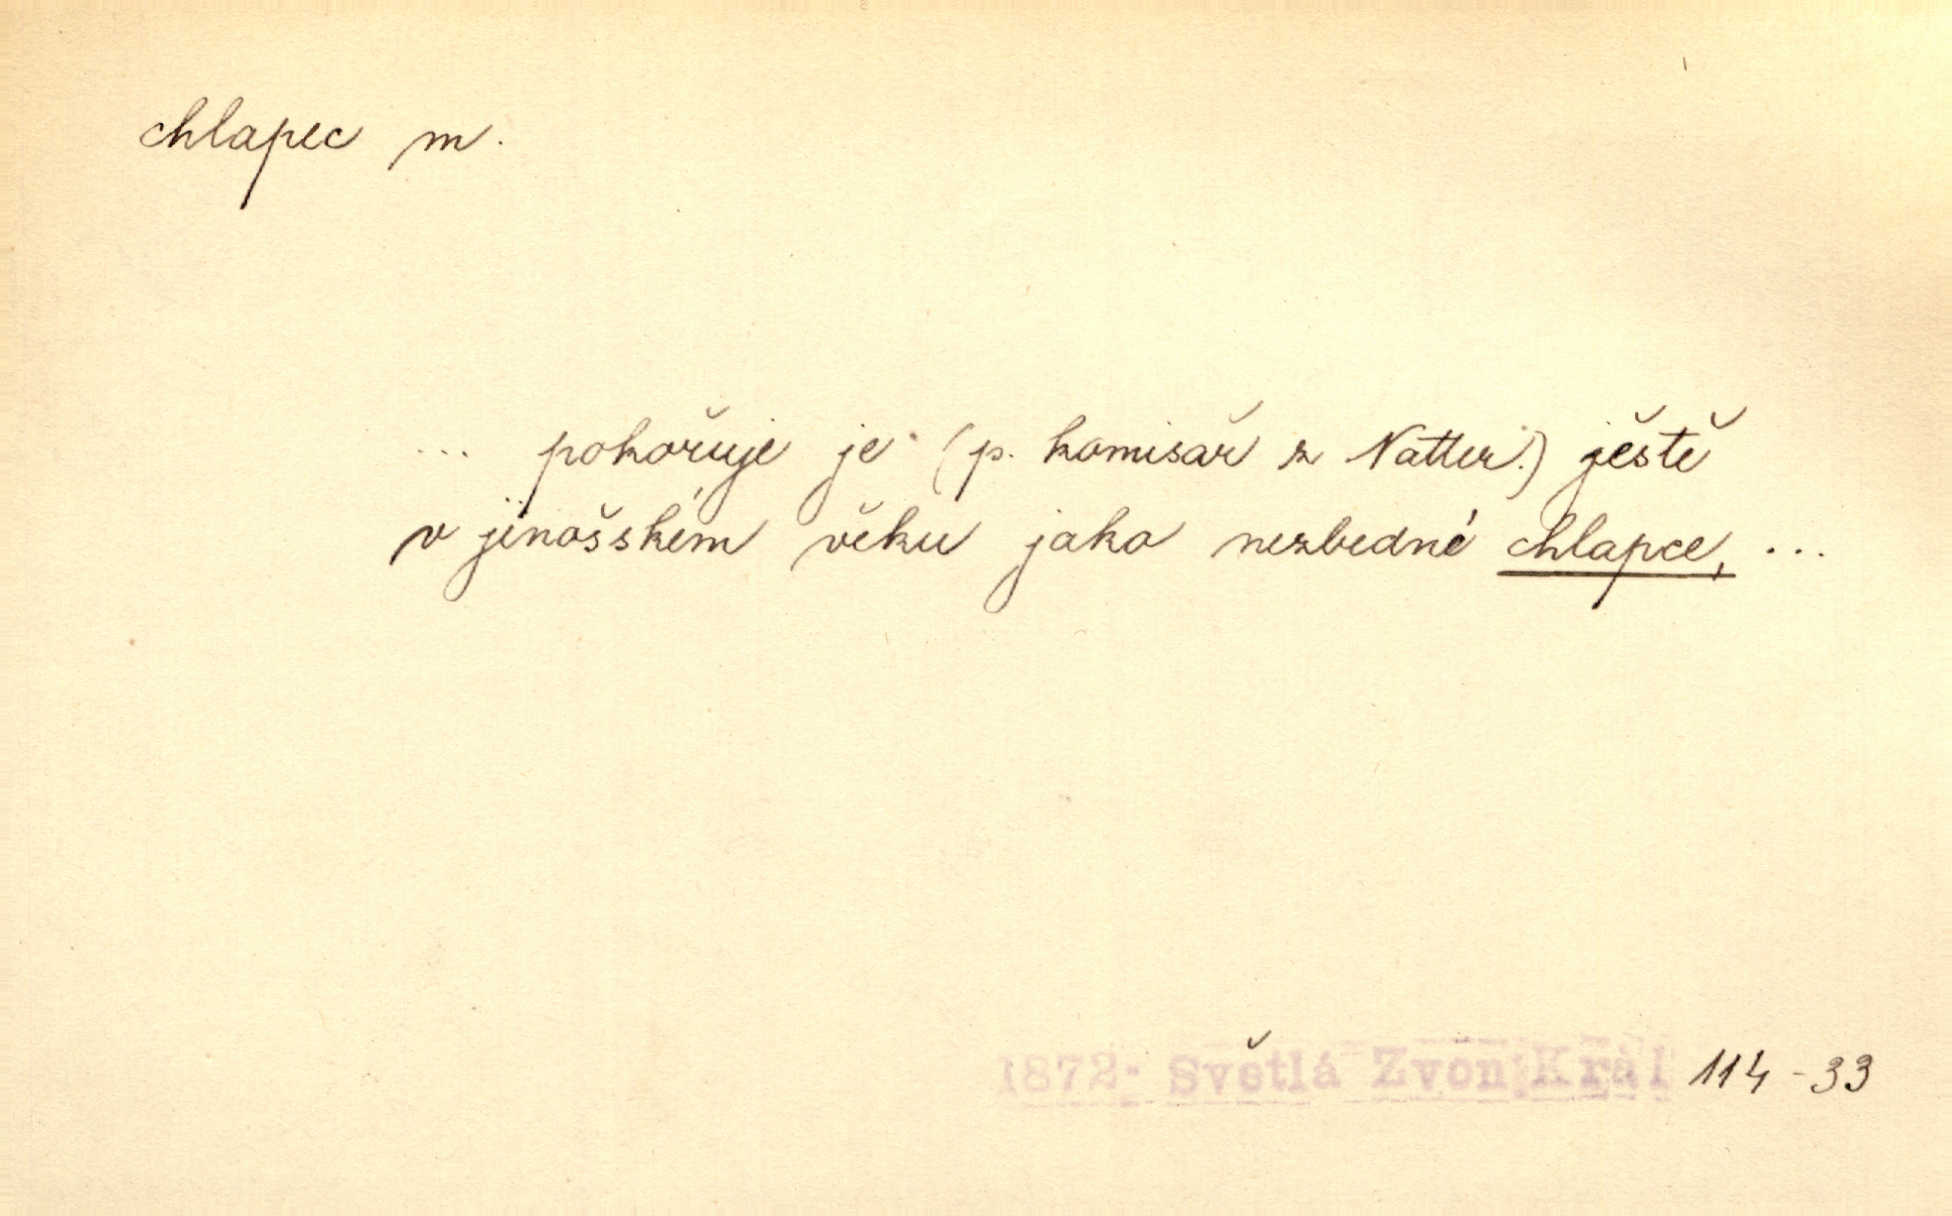 chlapec m.
... pokořuje je (p. komisař z Natter.) ještě
v jinošském věku jako nezbedné chlapce, ...
1872· Světlá Zvon. Král 114 - 33